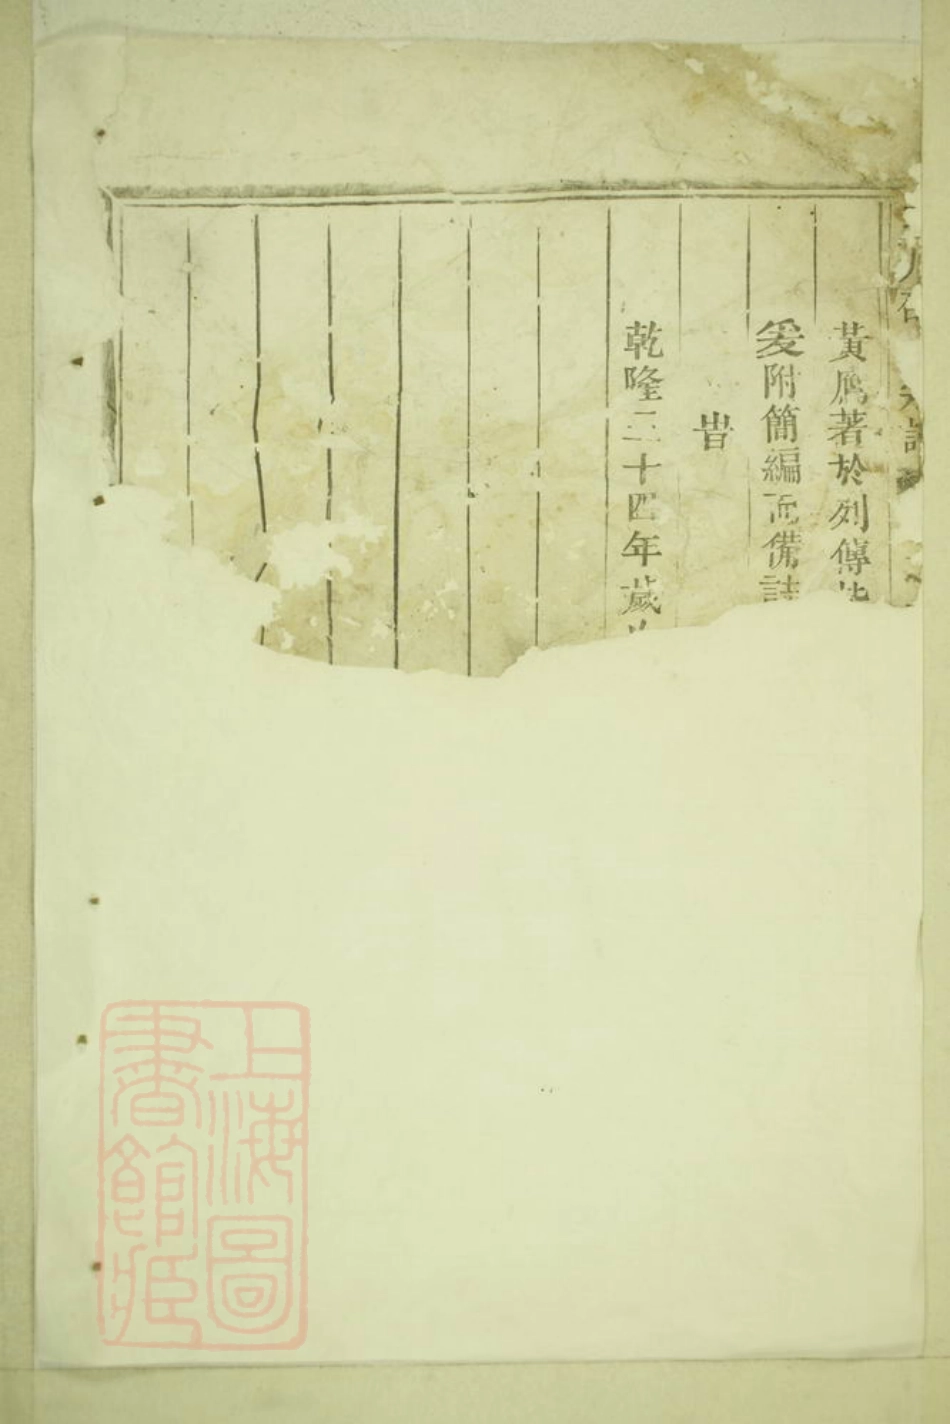 黃鳫著於列傳
爰附簡編而備誌
旹
乾隆二十四年歲
上海圖
書館藏